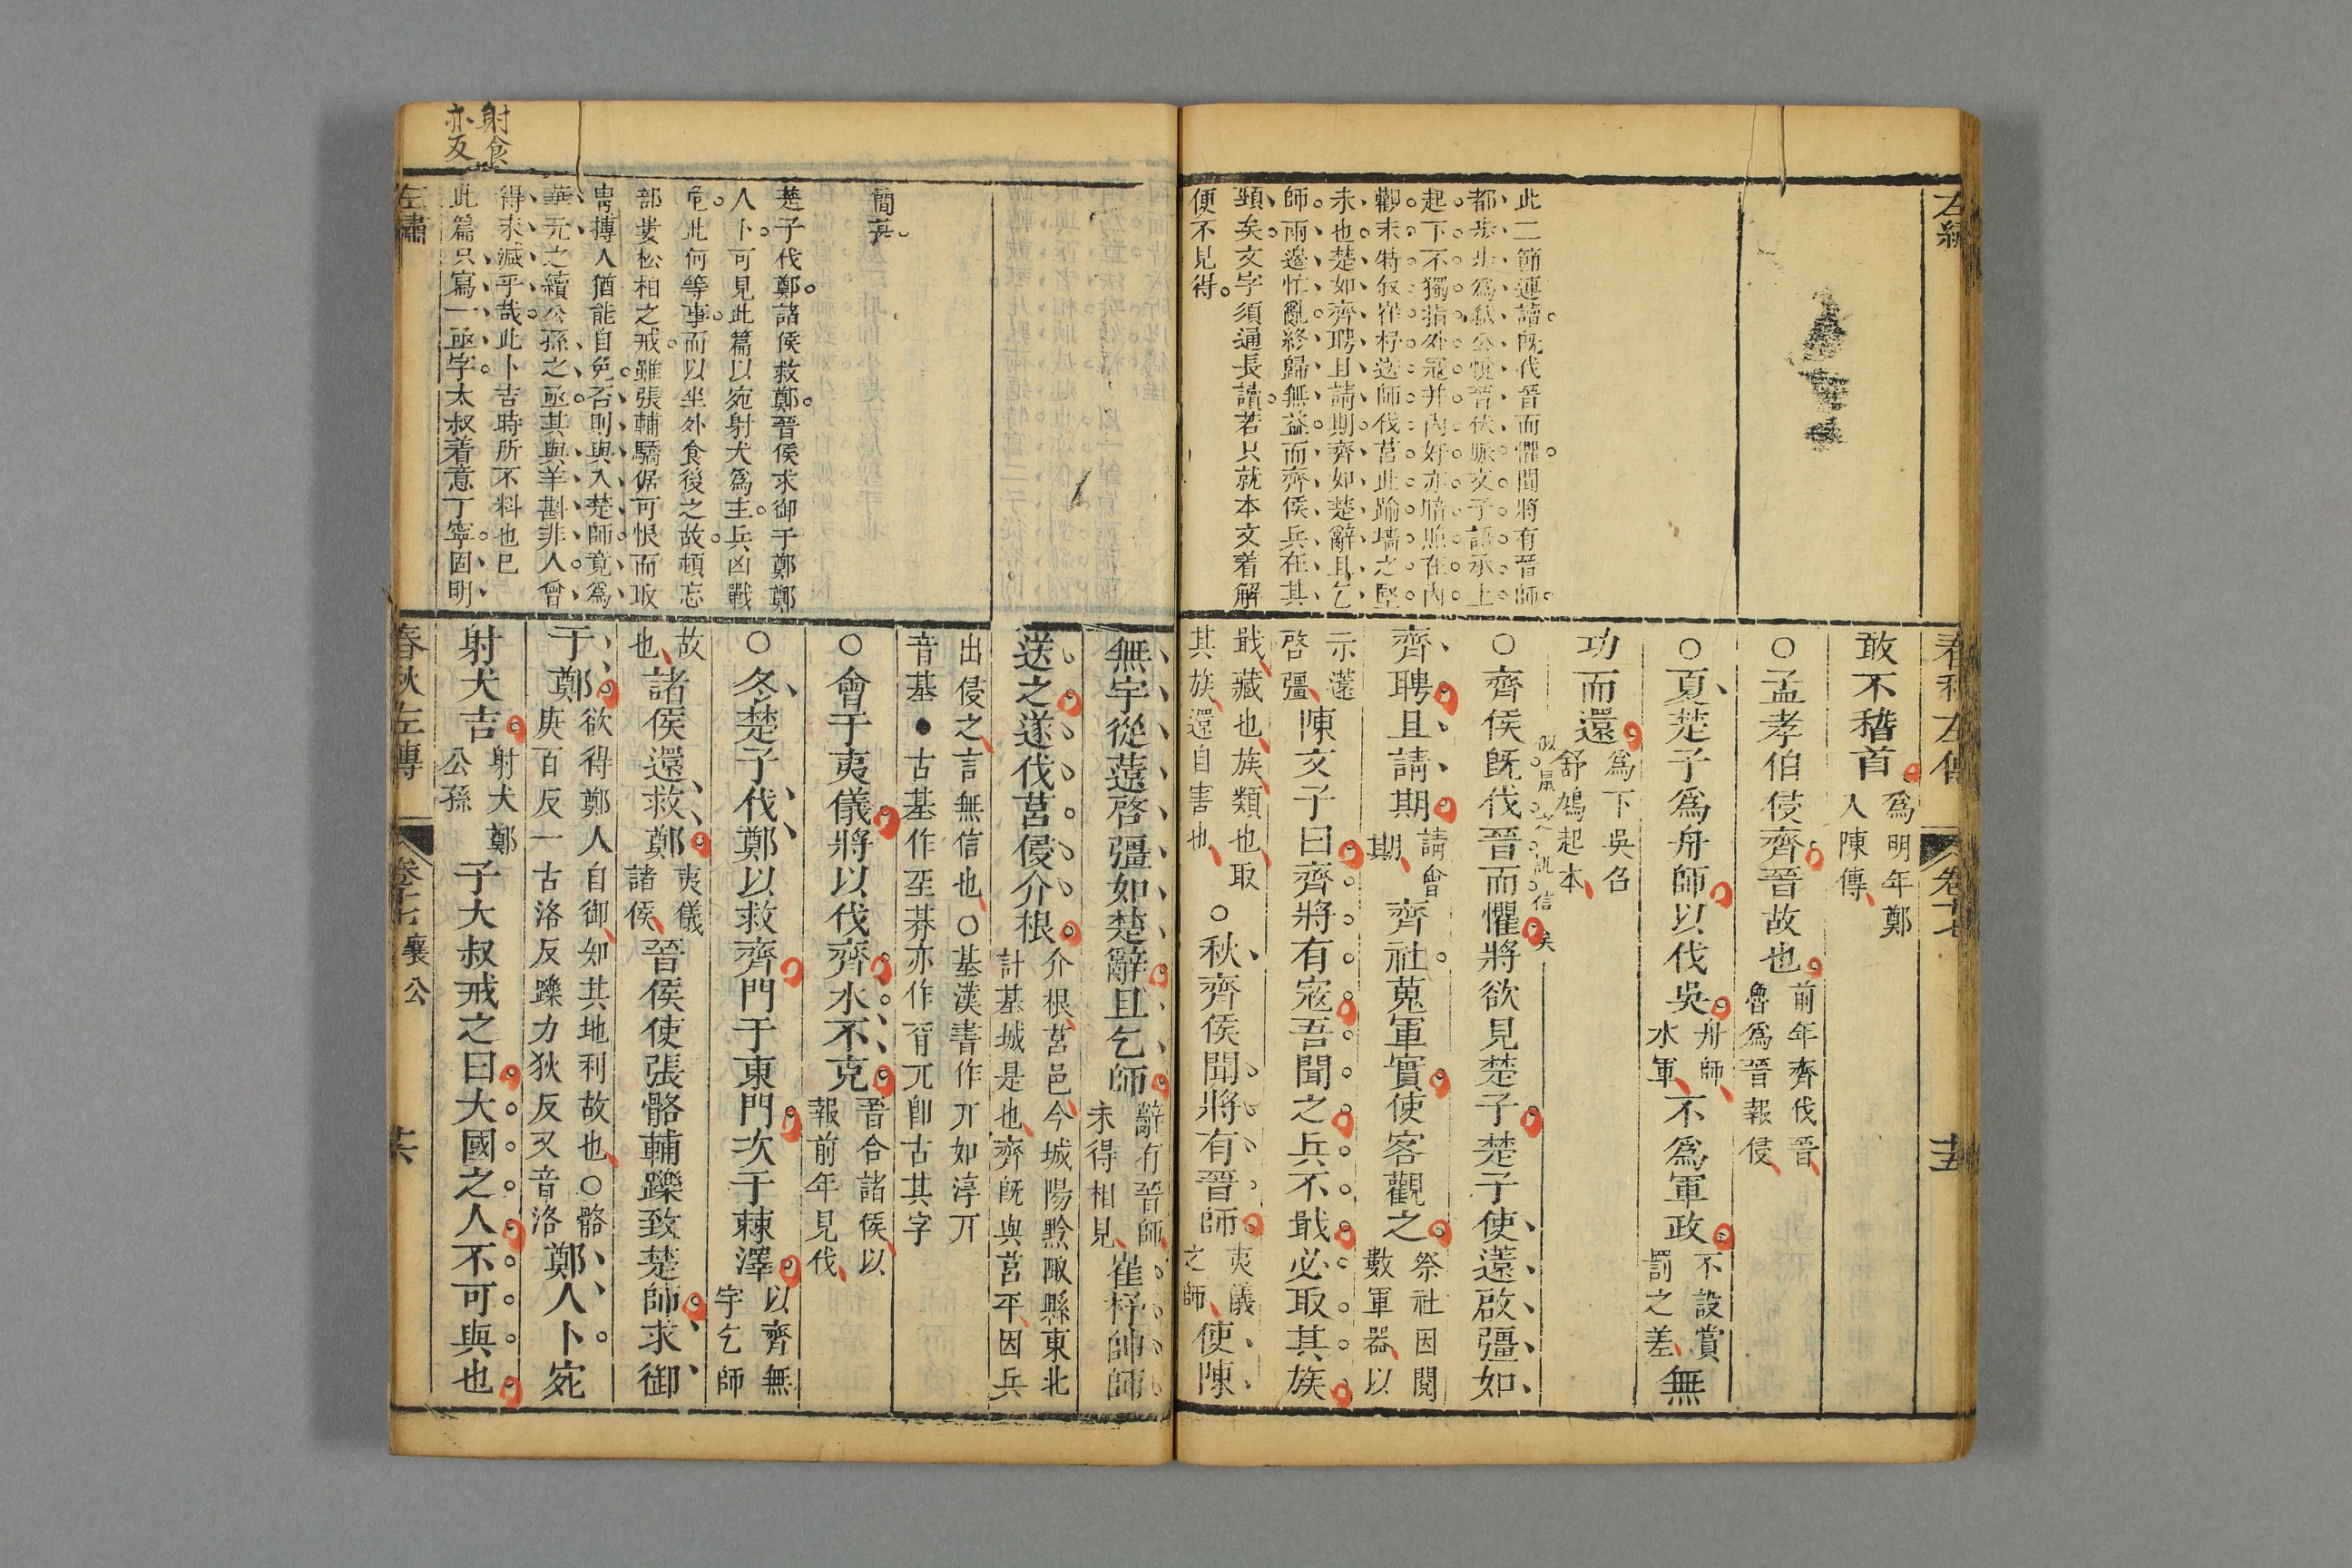 春秋左傳
卷十七
敢不稽首爲明年鄭入陳傳
○孟孝伯侵齊晉故也前年齊伐晉魯爲晉報侵
○夏楚子爲舟師以伐吳舟師水軍不爲軍政不設賞罰之差無
功而還爲下吳召舒鳩起本
○齊侯旣伐晉而懼將欲見楚子楚子使薳啟彊如
齊聘且請期請會期齊社蒐軍實使客觀之祭社因閱數軍器以
示薳啓彊陳文子曰齊將有寇吾聞之兵不戢必取其族
戢藏也族類也取其族還自害也○秋齊侯聞將有晉師夷儀之師使陳
此二節連讀旣伐晉而懼聞將有晉師
都步步爲弑公悅晉伏脈文子語承上
起下不獨指外寇并內好亦暗照在內
觀末特敍崔杼送師伐莒此踰墻之堅
未也楚如齊聘且請期齊如楚辭且乞
師兩邊忙亂終歸無益而齊侯兵在其
頸矣文字須通長讀若只就本文着解
便不見得
無宇從薳啓彊如楚辭且乞師辭有晉師未得相見崔杼帥師
送之遂伐莒侵介根介根莒邑今城陽黔陬縣東北計基城是也齊旣與莒平因兵
出侵之言無信也○基漢書作丌如淳丌音基●古基作至朞亦作𦙃丌卽古其字
○會于夷儀將以伐齊水不克晉合諸侯以報前年見伐
○冬楚子伐鄭以救齊門于東門次于棘澤以齊無宇乞師
故也諸侯還救鄭夷儀諸侯晉侯使張骼輔躒致楚師求御
于鄭欲得鄭人自御如其地利故也○骼庚百反一古洛反躒力狄反又音洛鄭人卜宛
射犬吉射犬鄭公孫子大叔戒之曰大國之人不可與也
簡英
楚子伐鄭諸侯救鄭晉侯求御于鄭鄭
人卜可見此篇以宛射犬爲主兵凶戰
危此何等事而以坐外食後之故頓忘
部婁松柏之戒雖張輔驕倨可恨而取
冑搏人猶能自免否則與入楚師竟爲
華元之續公孫之亟其與羊斟非人曾
得末減乎哉此卜吉時所不料也已
此篇只寫一亟字太叔着意丁寧固明
射食
亦反
左繡
春秋左傳
卷十七 襄公